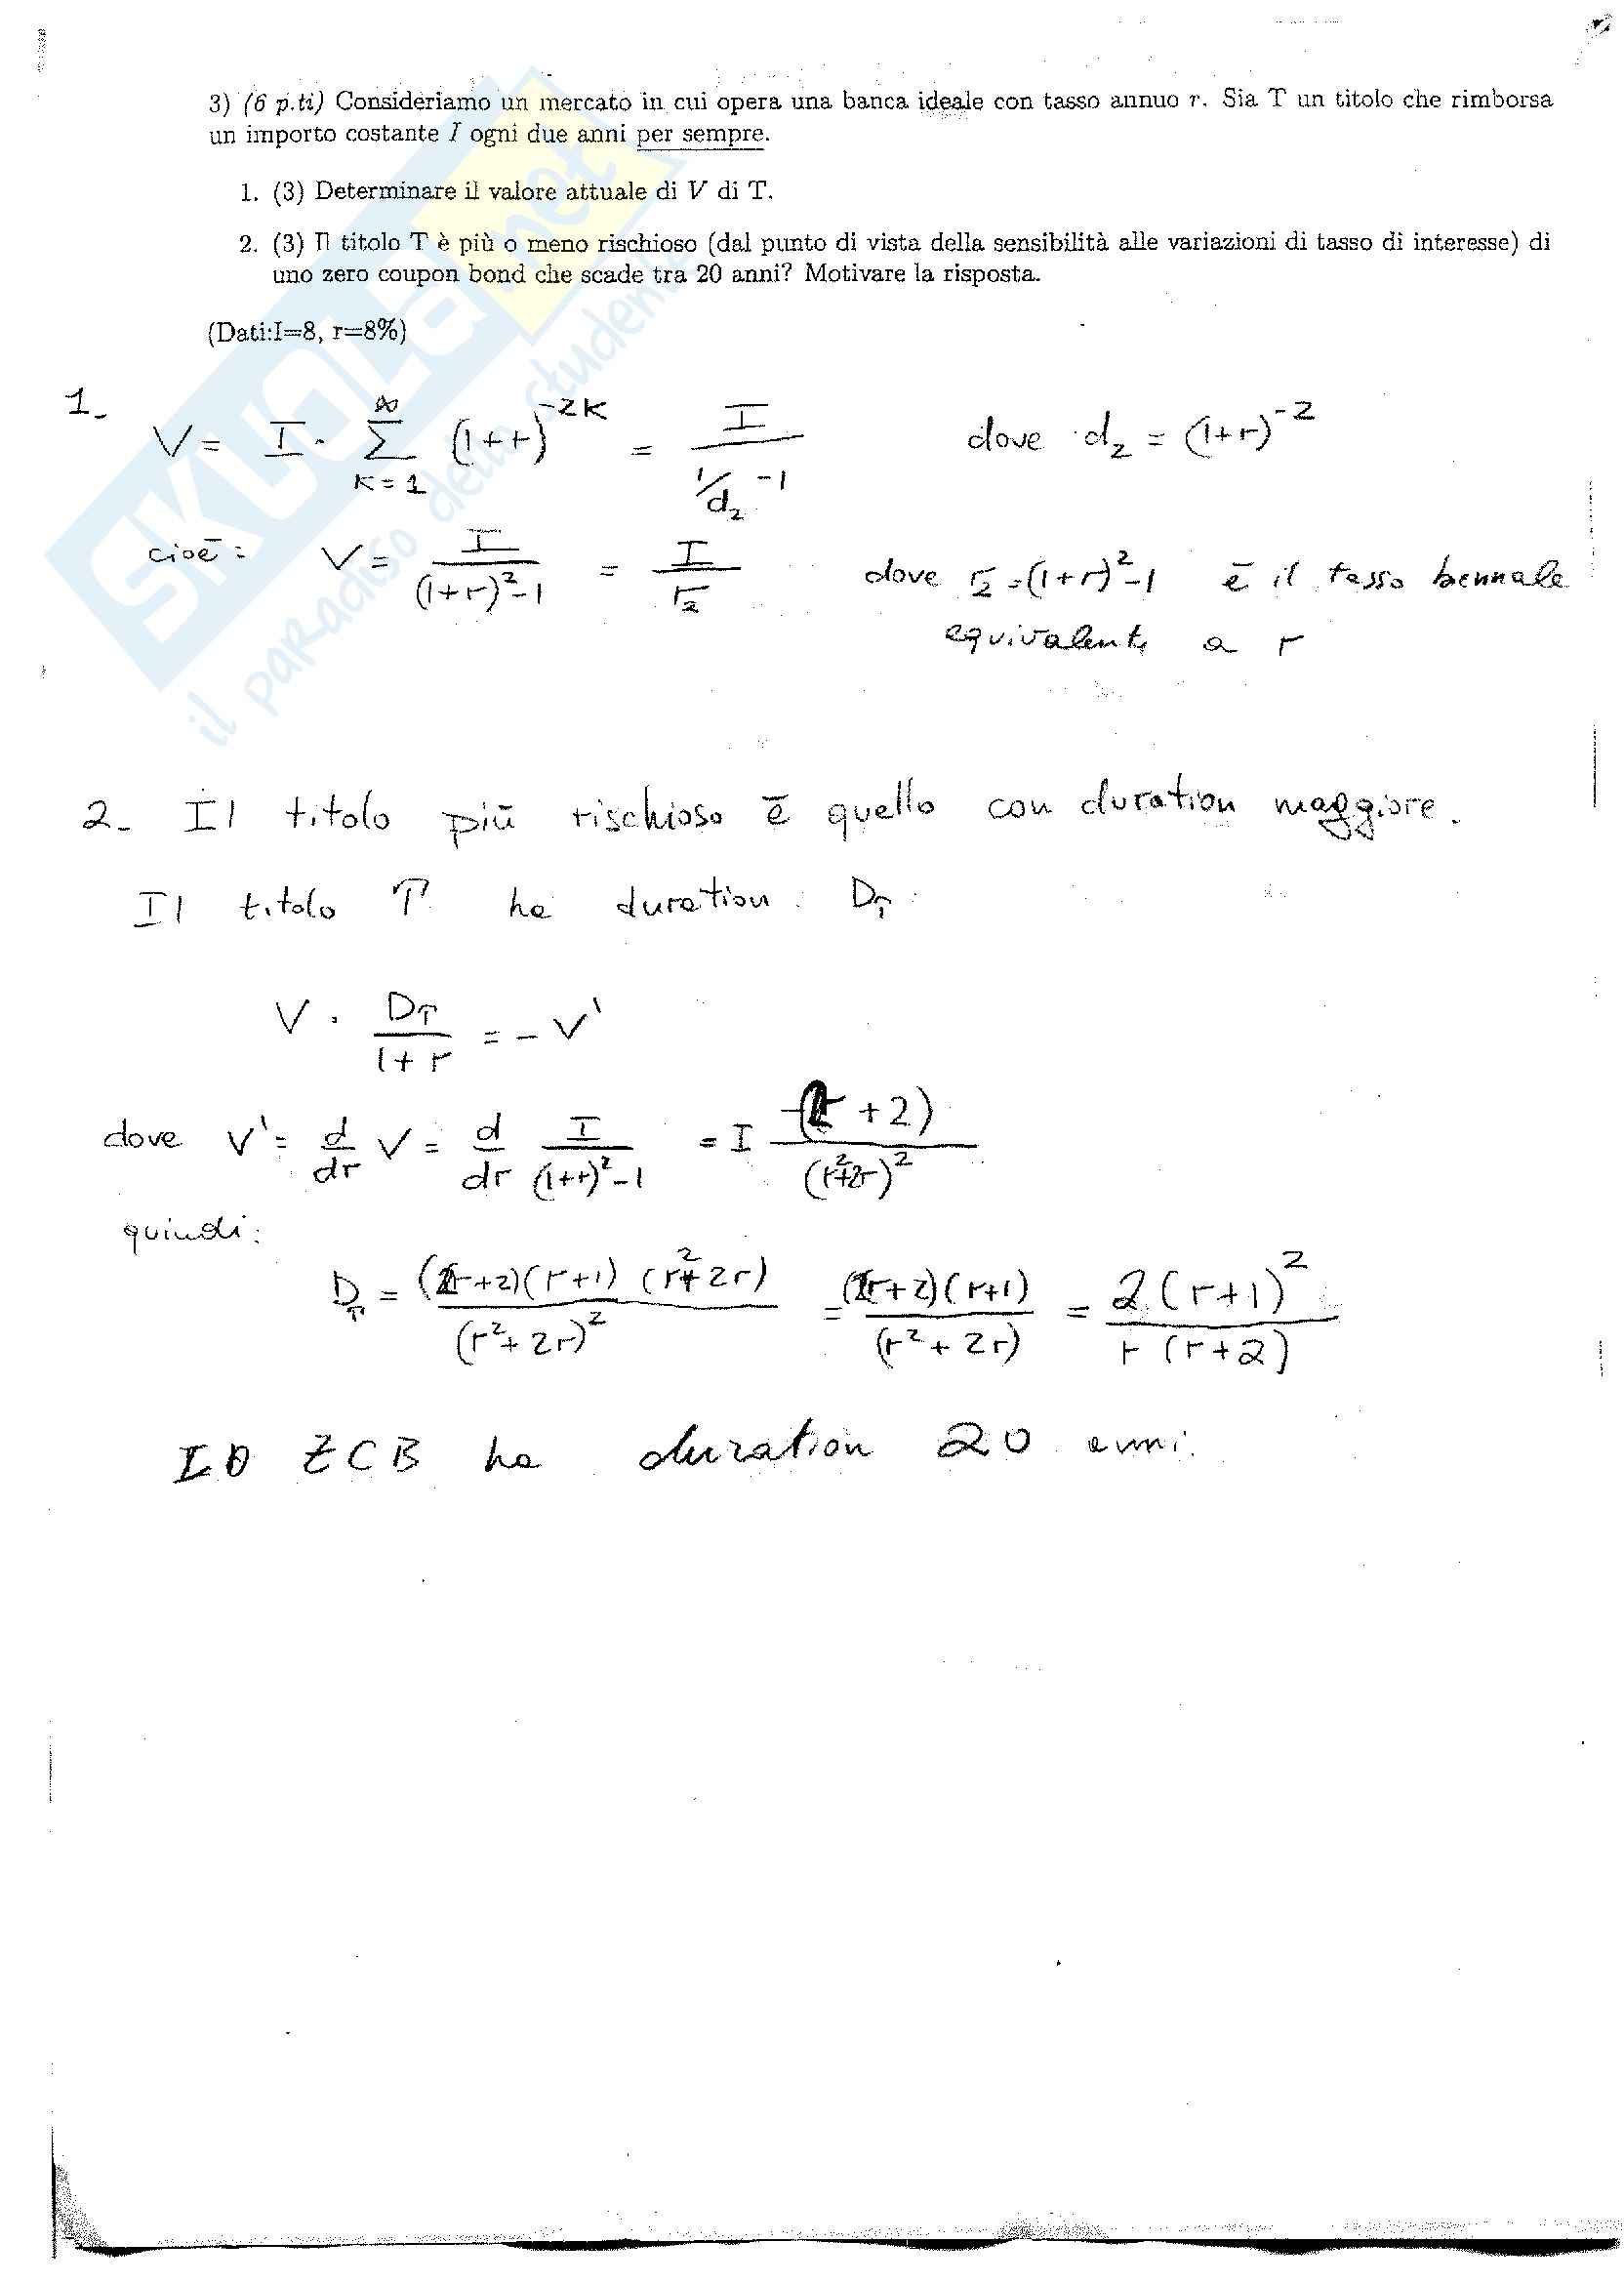 3) (6 p.ti) Consideriamo un mercato in cui opera una banca ideale con tasso annuo r. Sia T un titolo che rimborsa
un importo costante I ogni due anni per sempre.
1. (3) Determinare il valore attuale di V di T.
2. (3) Il titolo T è più o meno rischioso (dal punto di vista della sensibilità alle variazioni di tasso di interesse) di
uno zero coupon bond che scade tra 20 anni? Motivare la risposta.
(Dati:I=8, r=8%)
SKUOLA.net
il paradiso dello studente
1- V = I · ∑_{k=1}^{∞} (1+r)^{-2k} = I / (1/d₂ -1) dove d₂ = (1+r)^{-2}
cioē: V = I / ((1+r)²-1) = I / r₂ dove r₂ = (1+r)²-1 ē il tasso biennale
equivalente a r
2- Il titolo più rischioso ē quello con duration maggiore.
Il titolo T ha duration D_T
V · D_T / (1+r) = - V'
dove V' = d/dr V = d/dr I / ((1+r)²-1) = I -(2r+2) / (r²+2r)²
quindi:
D_T = (2r+2)(r+1)(r²+2r) / (r²+2r)² = (2r+2)(r+1) / (r²+2r) = 2(r+1)² / r(r+2)
Lo ZCB ha duration 20 anni.